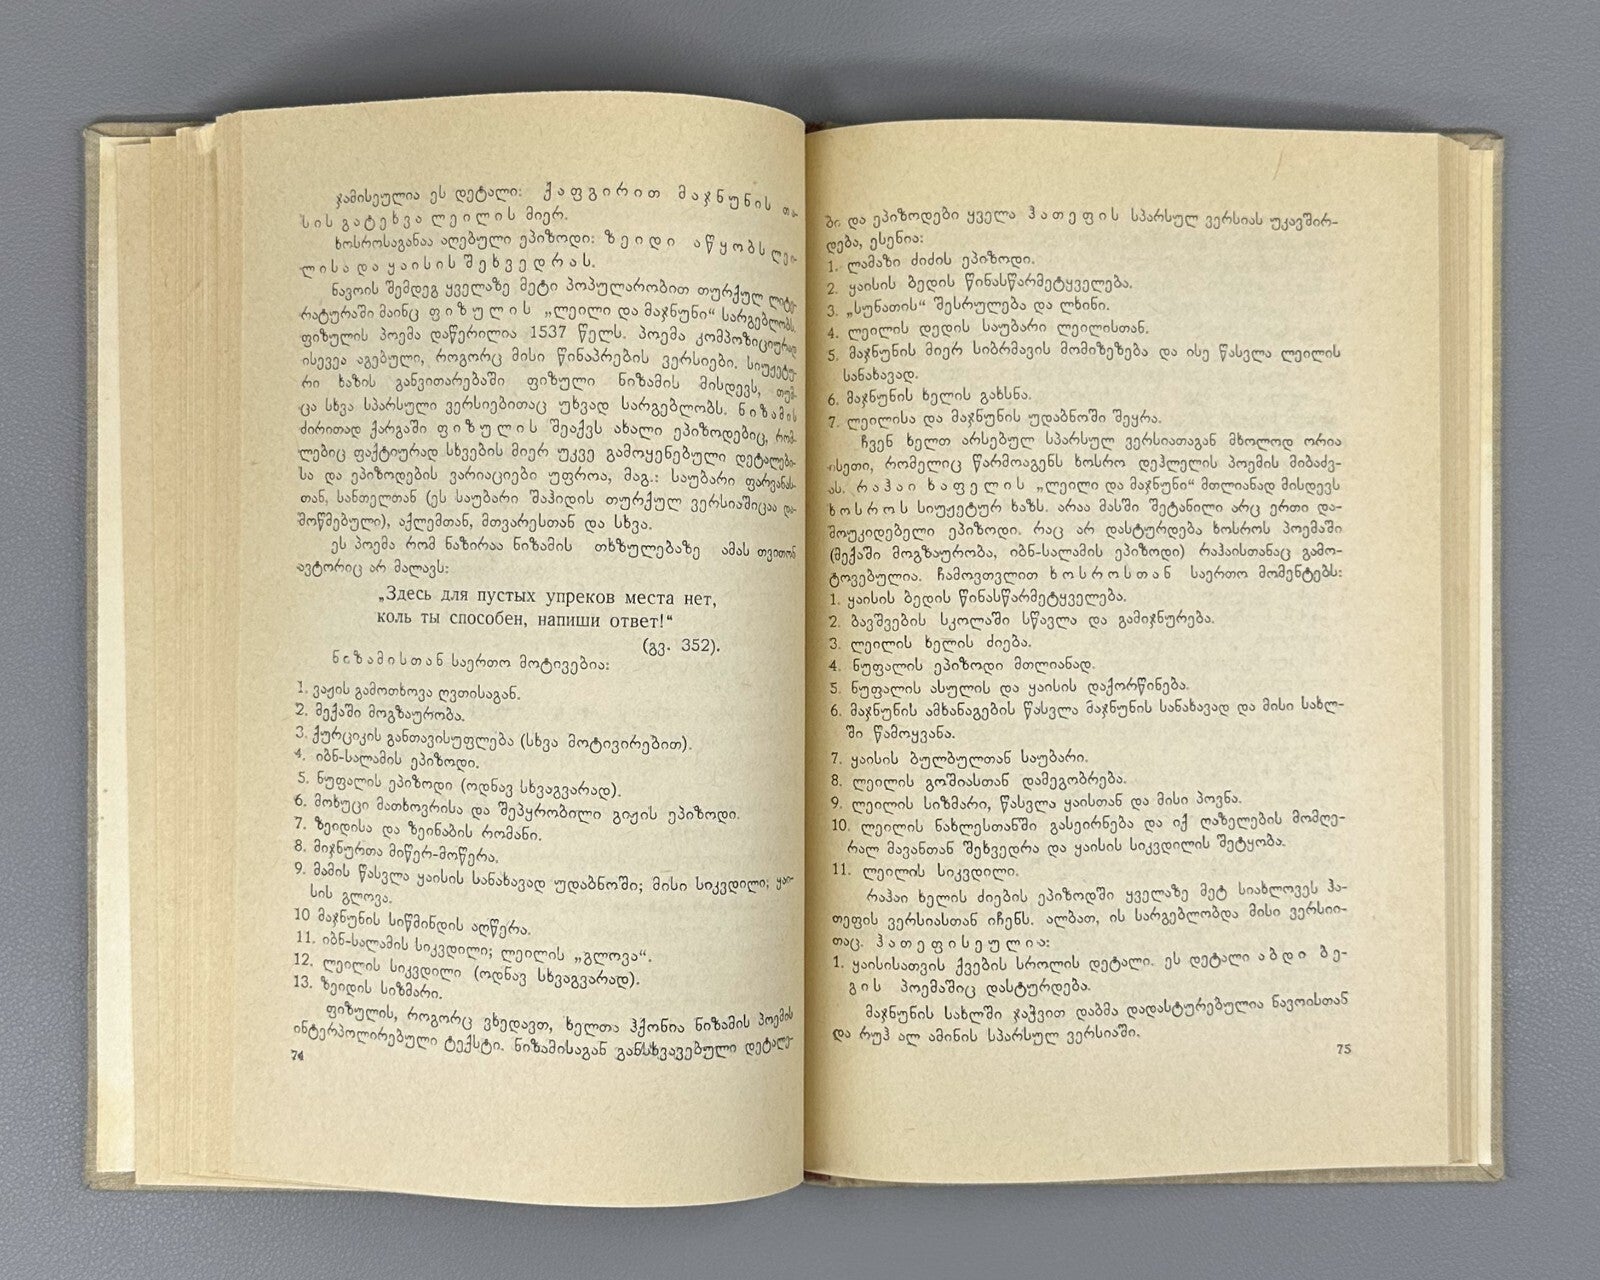 ჯამისეულია ეს დეტალი: ქაფგირით მაჯნუნის თა-
სის გატეხვა ლეილის მიერ.
ხოსროსაგანაა აღებული ეპიზოდი: ზეიდი აწყობს ლეი-
ლისა და ყაისის შეხვედრას.
ნავოის შემდეგ ყველაზე მეტი პოპულარობით თურქულ ლიტე-
რატურაში მაინც ფიზულის „ლეილი და მაჯნუნი“ სარგებლობს.
ფიზულის პოემა დაწერილია 1537 წელს. პოემა კომპოზიციურად
ისევეა აგებული, როგორც მისი წინაპრების ვერსიები. სიუჟეტუ-
რი ხაზის განვითარებაში ფიზული ნიზამის მისდევს, თუმ-
ცა სხვა სპარსული ვერსიებითაც უხვად სარგებლობს. ნიზამის
ძირითად ქარგაში ფიზულის შეაქვს ახალი ეპიზოდებიც, რომ-
ლებიც ფაქტიურად სხვების მიერ უკვე გამოყენებული დეტალები-
სა და ეპიზოდების ვარიაციები უფროა, მაგ.: საუბარი ფარვანას-
თან, სანთელთან (ეს საუბარი შაჰიდის თურქულ ვერსიაშიცაა და-
მოწმებული), აქლემთან, მთვარესთან და სხვა.
ეს პოემა რომ ნაზირაა ნიზამის თხზულებაზე ამას თვითონ
ავტორიც არ მალავს:
„Здесь для пустых упреков места нет,
коль ты способен, напиши ответ!“
(გვ. 352).
ნიზამისთან საერთო მოტივებია:
1. ვაჟის გამოთხოვა ღვთისაგან.
2. მექაში მოგზაურობა.
3. ქურციკის განთავისუფლება (სხვა მოტივირებით).
4. იბნ-სალამის ეპიზოდი.
5. ნუფალის ეპიზოდი (ოდნავ სხვაგვარად).
6. მოხუცი მათხოვრისა და შეპყრობილი გიჟის ეპიზოდი.
7. ზეიდისა და ზეინაბის რომანი.
8. მიჯნურთა მიწერ-მოწერა.
9. მამის წასვლა ყაისის სანახავად უდაბნოში; მისი სიკვდილი; ყაი-
სის გლოვა.
10 მაჯნუნის სიწმინდის აღწერა.
11. იბნ-სალამის სიკვდილი; ლეილის „გლოვა“.
12. ლეილის სიკვდილი (ოდნავ სხვაგვარად).
13. ზეიდის სიზმარი.
ფიზულის, როგორც ვხედავთ, ხელთა ჰქონია ნიზამის პოემის
ინტერპოლირებული ტექსტი. ნიზამისაგან განსხვავებული დეტალე-
74
ბი და ეპიზოდები ყველა ჰათეფის სპარსულ ვერსიას უკავშირ-
დება, ესენია:
1. ლამაზი ძიძის ეპიზოდი.
2. ყაისის ბედის წინასწარმეტყველება.
3. „სუნათის“ შესრულება და ლხინი.
4. ლეილის დედის საუბარი ლეილისთან.
5. მაჯნუნის მიერ სიბრმავის მომიზეზება და ისე წასვლა ლეილის
სანახავად.
6. მაჯნუნის ხელის გახსნა.
7. ლეილისა და მაჯნუნის უდაბნოში შეყრა.
ჩვენ ხელთ არსებულ სპარსულ ვერსიათაგან მხოლოდ ორია
ისეთი, რომელიც წარმოაგენს ხოსრო დეჰლელის პოემის მიბაძვ-
ას. რაჰაი ხაფელის „ლეილი და მაჯნუნი“ მთლიანად მისდევს
ხოსროს სიუჟეტურ ხაზს. არაა მასში შეტანილი არც ერთი და-
მოუკიდებელი ეპიზოდი. რაც არ დასტურდება ხოსროს პოემაში
(მექაში მოგზაურობა, იბნ-სალამის ეპიზოდი) რაჰაისთანაც გამო-
ტოვებულია. ჩამოვთვლით ხოსროსთან საერთო მომენტებს:
1. ყაისის ბედის წინასწარმეტყველება.
2. ბავშვების სკოლაში სწავლა და გამიჯნურება.
3. ლეილის ხელის ძიება.
4. ნუფალის ეპიზოდი მთლიანად.
5. ნუფალის ასულის და ყაისის დაქორწინება.
6. მაჯნუნის ამხანაგების წასვლა მაჯნუნის სანახავად და მისი სახლ-
ში წამოყვანა.
7. ყაისის ბულბულთან საუბარი.
8. ლეილის გოშიასთან დამეგობრება.
9. ლეილის სიზმარი, წასვლა ყაისთან და მისი პოვნა.
10. ლეილის ნახლესთანში გასეირნება და იქ ღაზელების მომღე-
რალ მავანთან შეხვედრა და ყაისის სიკვდილის შეტყობა.
11. ლეილის სიკვდილი.
რაჰაი ხელის ძიების ეპიზოდში ყველაზე მეტ სიახლოვეს ჰა-
თეფის ვერსიასთან იჩენს. ალბათ, ის სარგებლობდა მისი ვერსიი-
თაც. ჰათეფისეულია:
1. ყაისისათვის ქვების სროლის დეტალი. ეს დეტალი აბდი ბე-
გის პოემაშიც დასტურდება.
მაჯნუნის სახლში ჯაჭვით დაბმა დადასტურებულია ნავოისთან
და რუჰ ალ ამინის სპარსულ ვერსიაში.
75